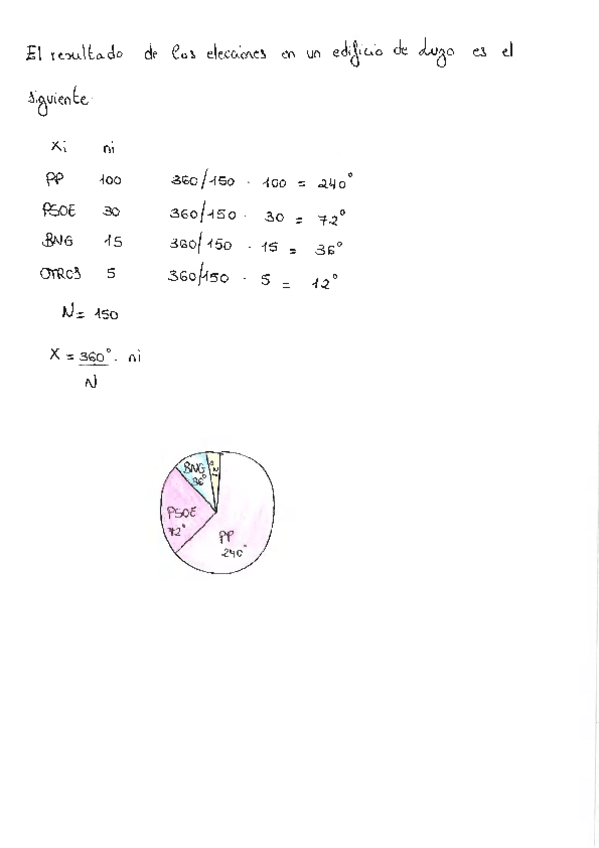 El resultado de las elecciones en un edificio de Lugo es el
siguiente.
Xi ni
PP 100 360/150 · 100 = 240°
PSOE 30 360/150 · 30 = 72°
BNG 15 360/150 · 15 = 36°
OTROS 5 360/150 · 5 = 12°
N = 150
X = 360° · ni
N
BNG
36°
12°
PSOE
72°
PP
240°